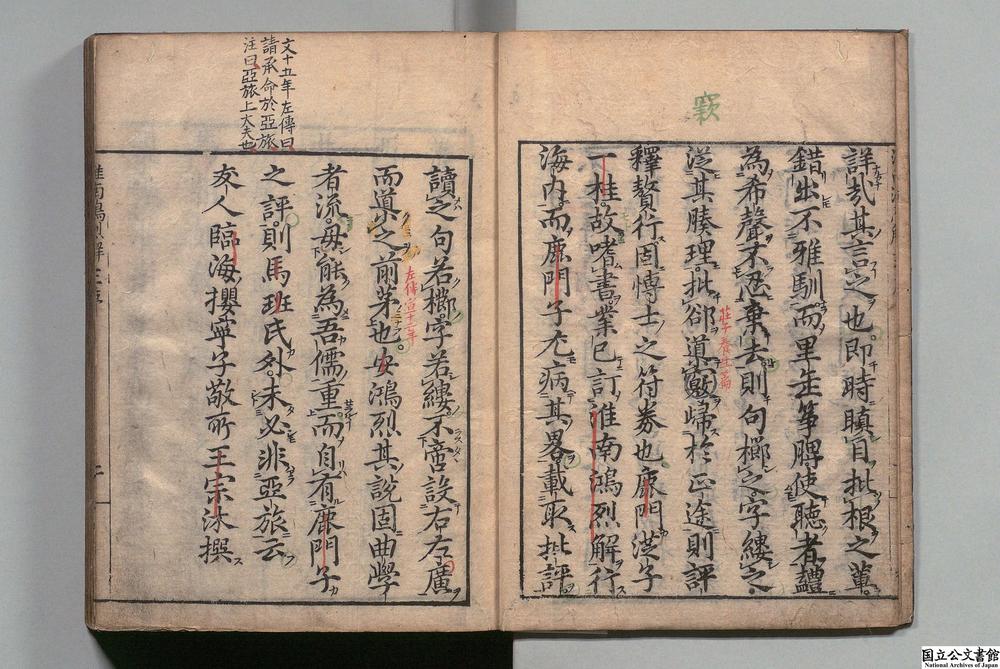 竅
詳哉其言之也即時瞋目批根之萆
錯出不雅馴而里缶箏髀使聽者譴
為希聲不忍棄去則句櫛之字縷之
莊子養生篇
從其腠理批郤導窾歸於正途則評
釋贅行固博士之符券也鹿門洪子
一桂故嗜書業已訂淮南鴻烈解行
海内而鹿門子尤病其畧載取批評
讀之句若櫛字若縷不啻設右左廣
而道之前茅也安鴻烈其說固曲學
左傳宣十二年
者流毋能為吾儒重而自有鹿門子
之評則馬班氏外未必非亞旅云
友人臨海攖寧子敬所王宗沐撰
文十五年左傳曰
請承命於亞旅
注曰亞旅上大夫也
国立公文書館
National Archives of Japan